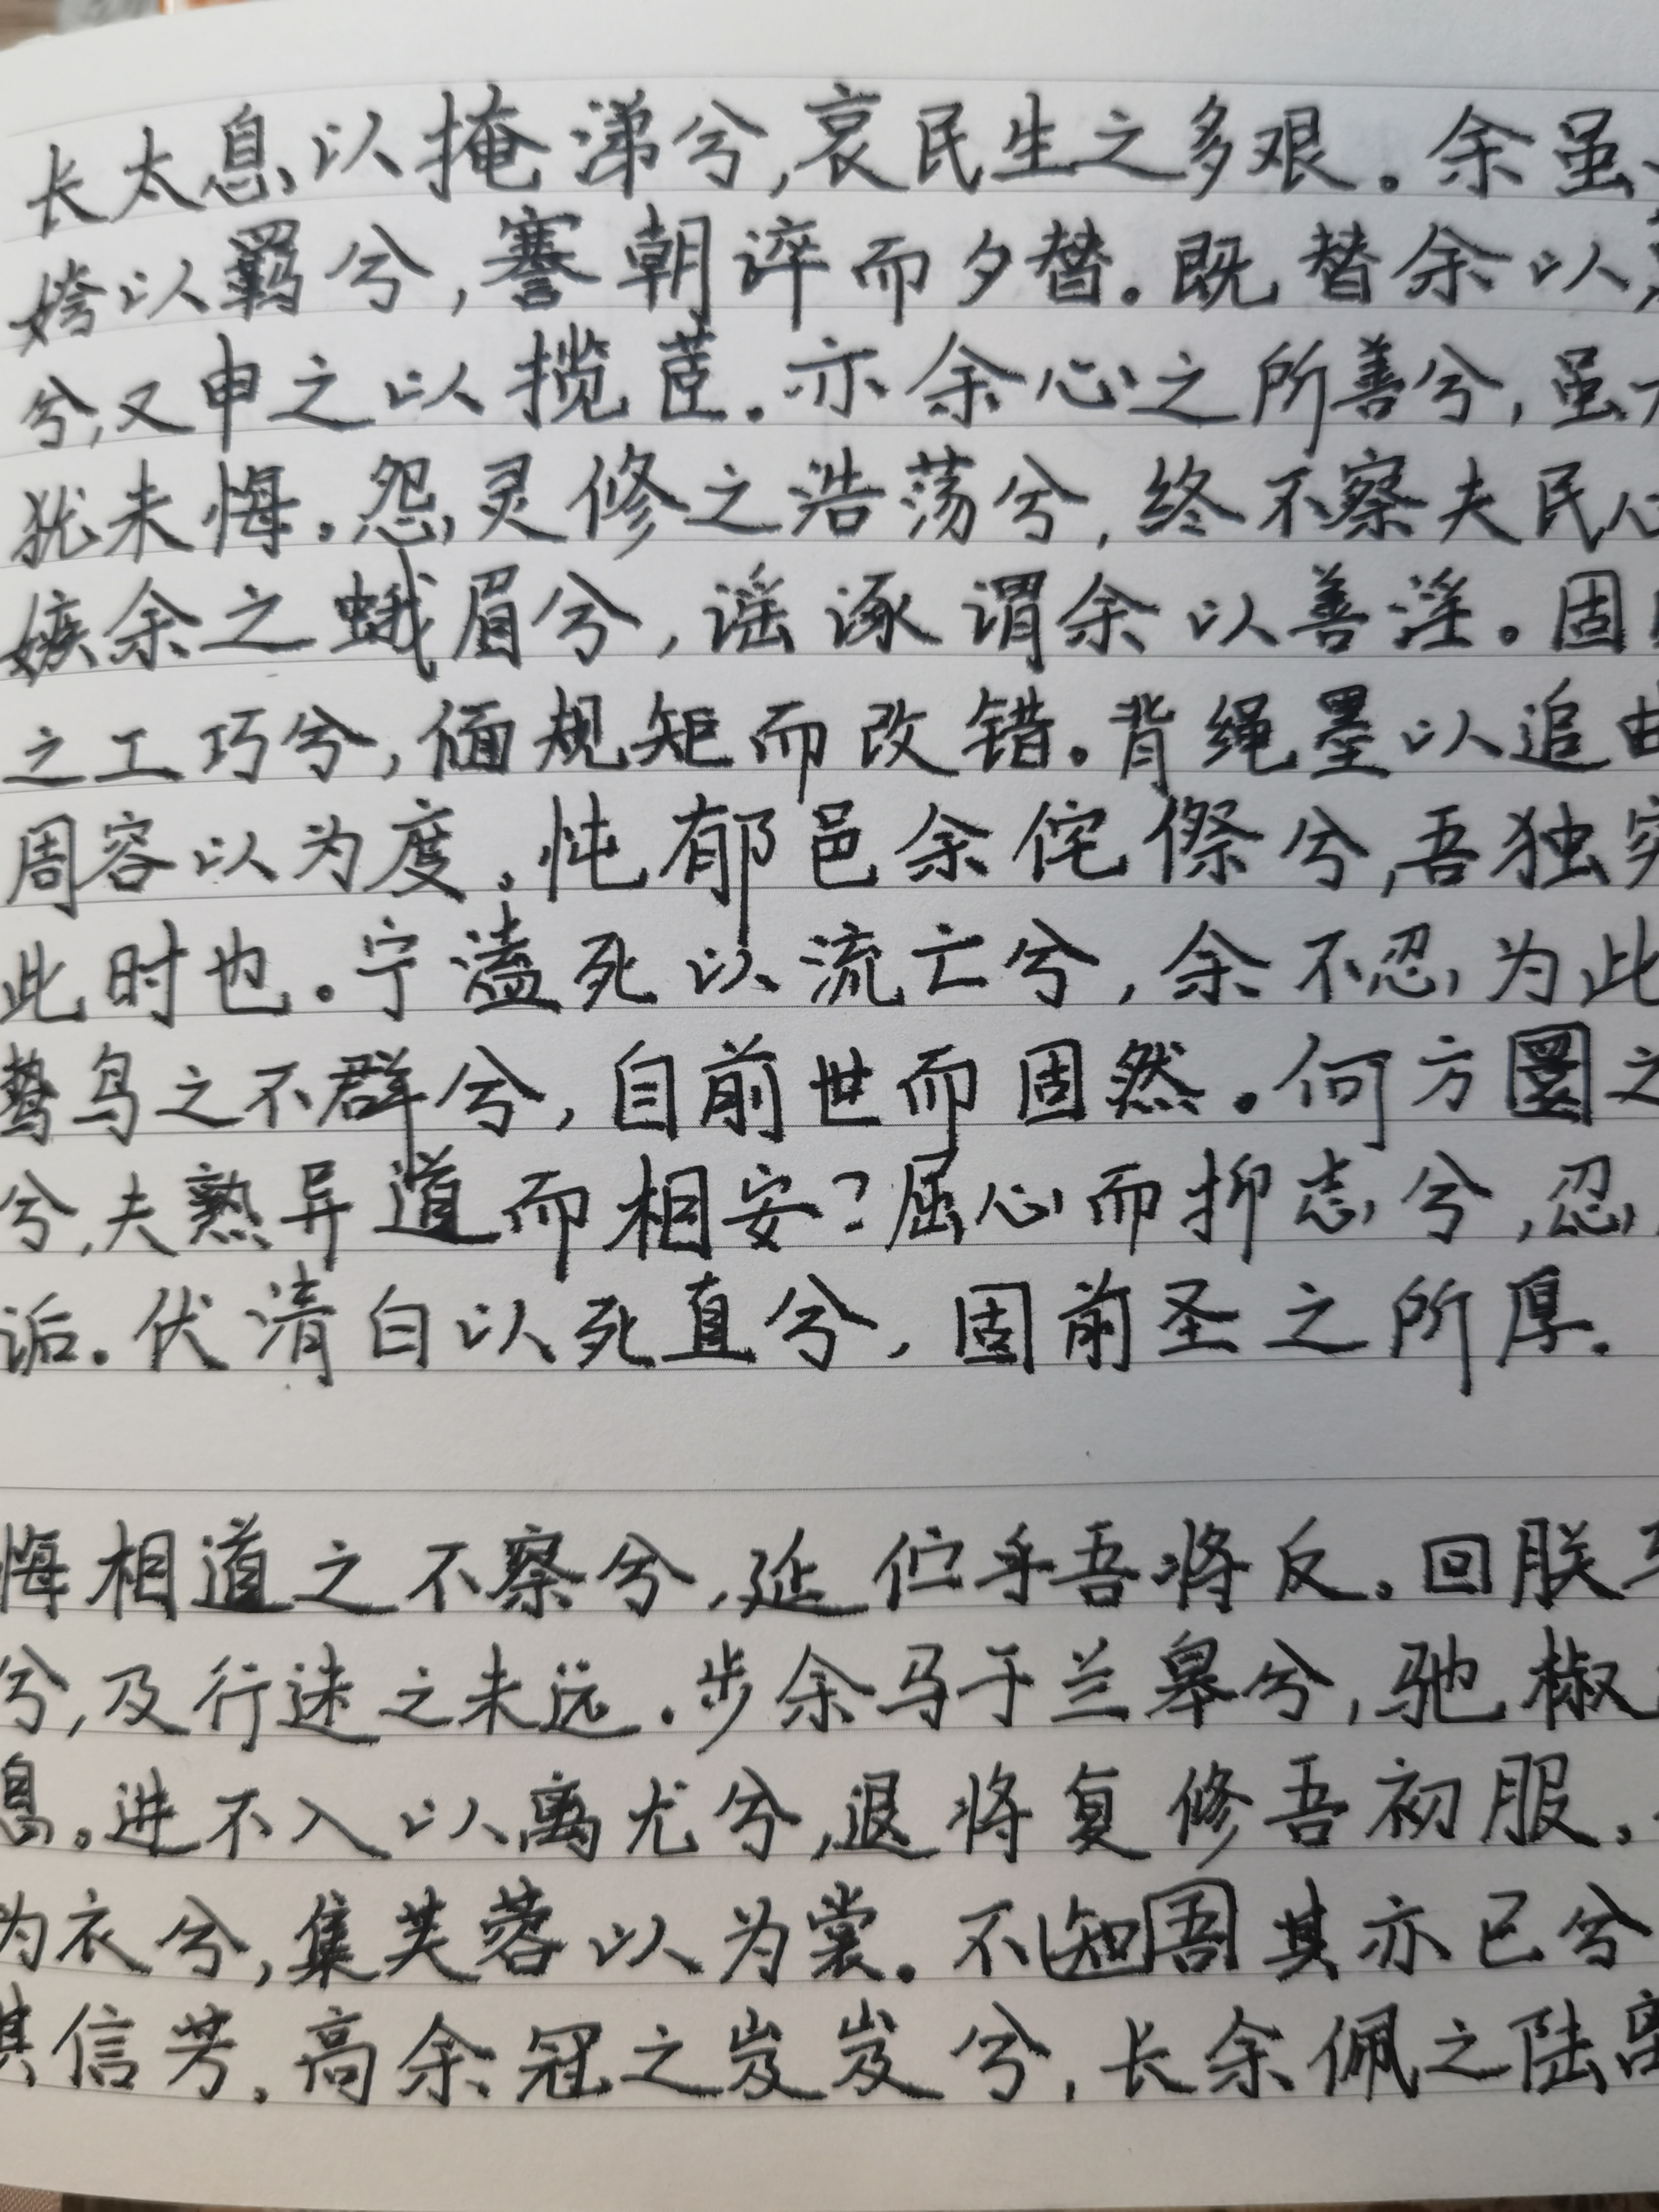 长太息以掩涕兮,哀民生之多艰。余虽
姱以羁兮,謇朝谇而夕替。既替余以
兮,又申之以揽茝。亦余心之所善兮,虽
犹未悔。怨灵修之浩荡兮,终不察夫民心
嫉余之蛾眉兮,谣诼谓余以善淫。固
之工巧兮,偭规矩而改错。背绳墨以追曲
周容以为度。忳郁邑余侘傺兮,吾独穷
此时也。宁溘死以流亡兮,余不忍为此
鸷鸟之不群兮,自前世而固然。何方圜之
兮,夫熟异道而相安?屈心而抑志兮,忍
诟。伏清白以死直兮,固前圣之所厚。
悔相道之不察兮,延伫乎吾将反。回朕
兮,及行迷之未远。步余马于兰皋兮,驰椒
息。进不入以离尤兮,退将复修吾初服。
为衣兮,集芙蓉以为裳。不知吾其亦已兮
其信芳。高余冠之岌岌兮,长余佩之陆离